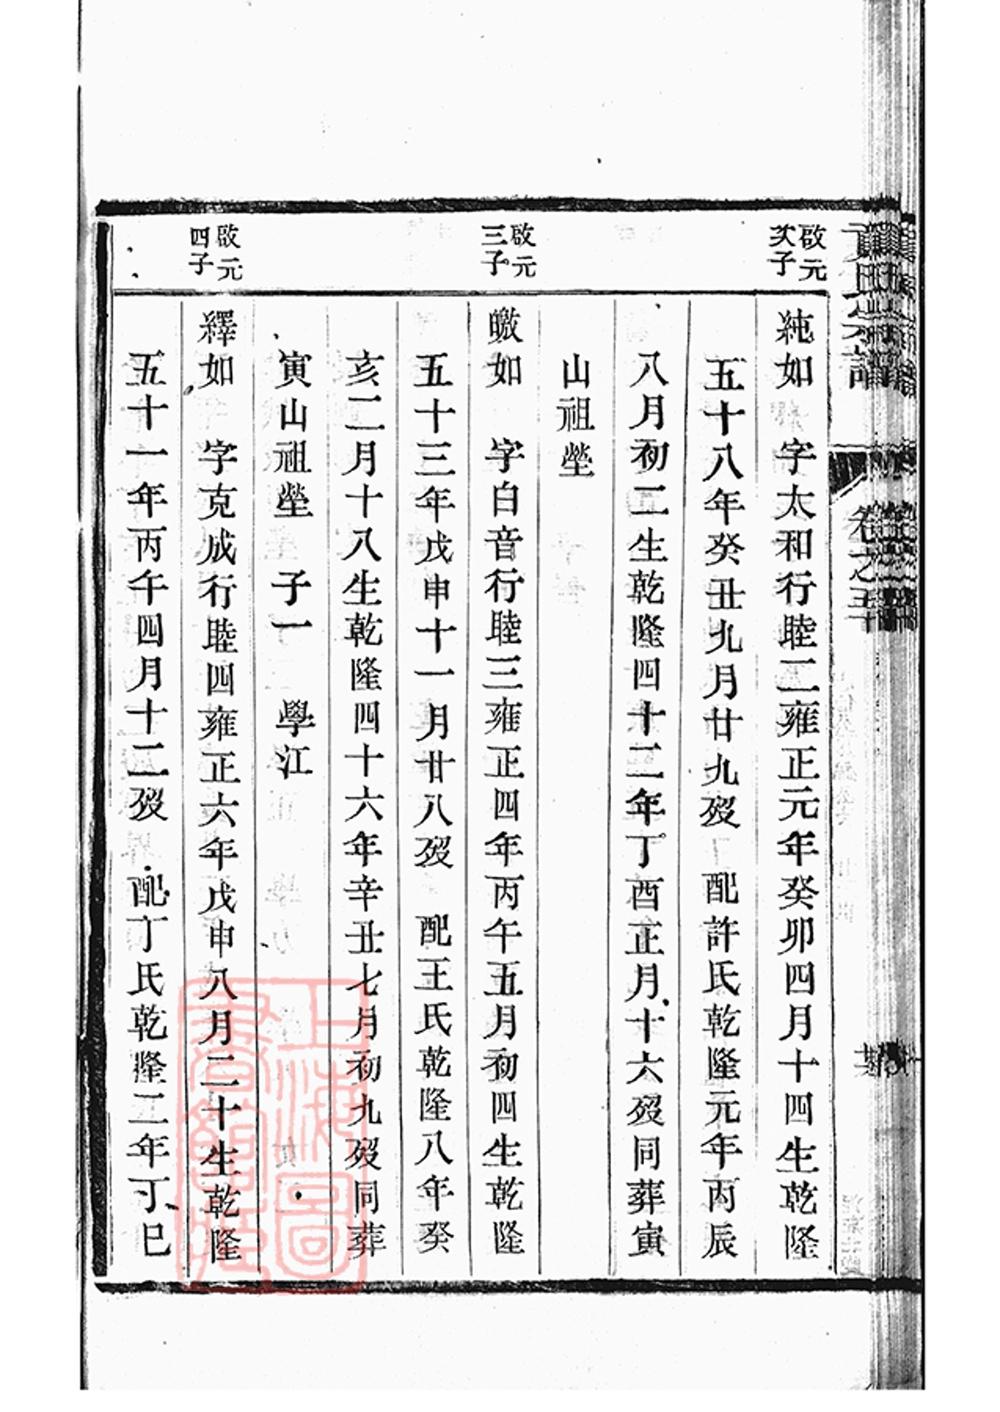 啟元
次子
純如　字太和行睦二雍正元年癸卯四月十四生乾隆
五十八年癸丑九月廿九歿　配許氏乾隆元年丙辰
八月初二生乾隆四十二年丁酉正月十六歿同葬寅
山祖塋
啟元
三子
皦如　字白音行睦三雍正四年丙午五月初四生乾隆
五十三年戊申十一月廿八歿　配王氏乾隆八年癸
亥二月十八生乾隆四十六年辛丑七月初九歿同葬
寅山祖塋　子一　學江
啟元
四子
繹如　字克成行睦四雍正六年戊申八月二十生乾隆
五十一年丙午四月十二歿　配丁氏乾隆二年丁巳
卷之五十
上海圖書館藏